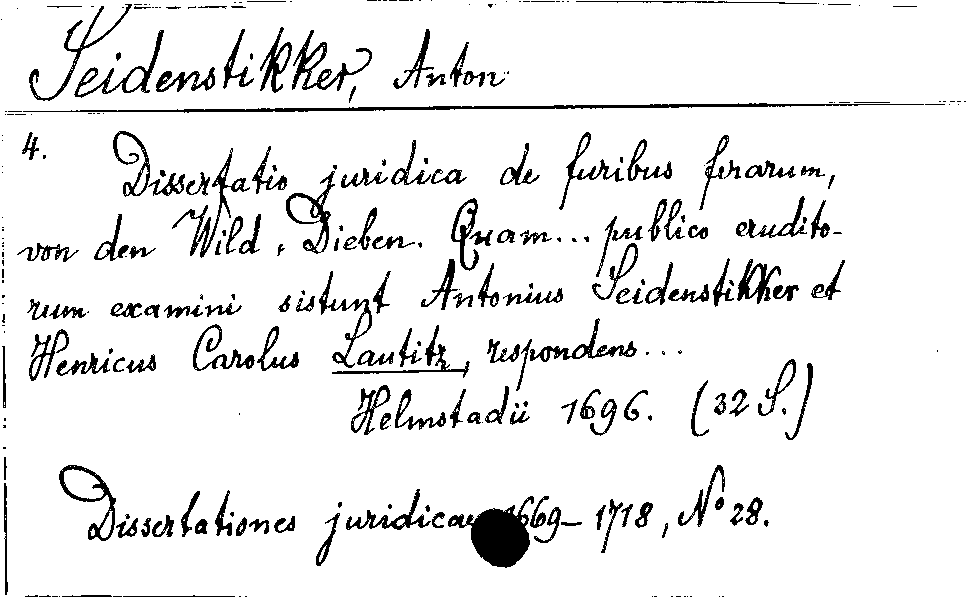 Seidenstikker, Anton
4.
Dissertatio juridica de furibus ferarum,
von den Wild-Dieben. Quam... publico erudito-
rum examini sistunt Antonius Seidenstikker et
Henricus Carolus Lautitz, respondens...
Helmstadii 1696. (32 S.)
Dissertationes juridicae 1669-1718, No 28.